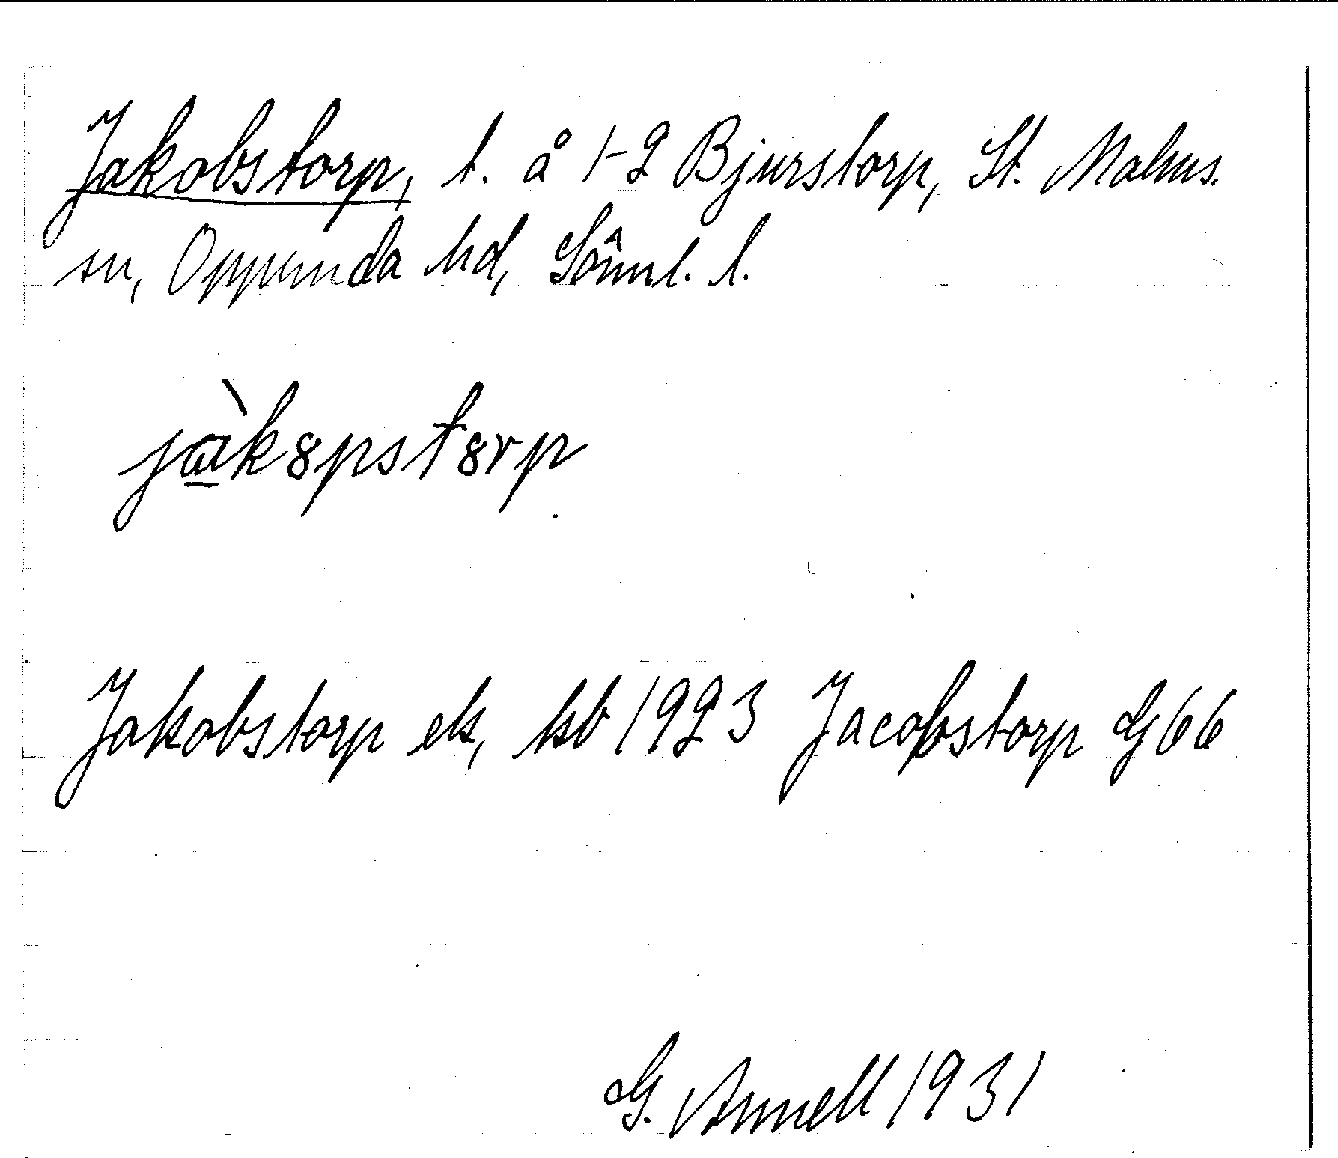 Jakobstorp, t. å 1-2 Bjurstorp, St. Malms
sn, Oppunda hd, Söml. l.
jàkȣpstȣrp
Jakobstorp ek, kb 1923 Jacobstorp G 66
G. Annell 1931